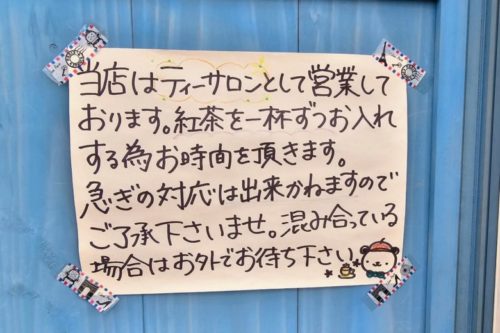 当店はティーサロンとして営業して
おります。紅茶を一杯ずつお入れ
する為お時間を頂きます。
急ぎの対応は出来かねますので
ご了承下さいませ。混み合っている
場合はお外でお待ち下さい。